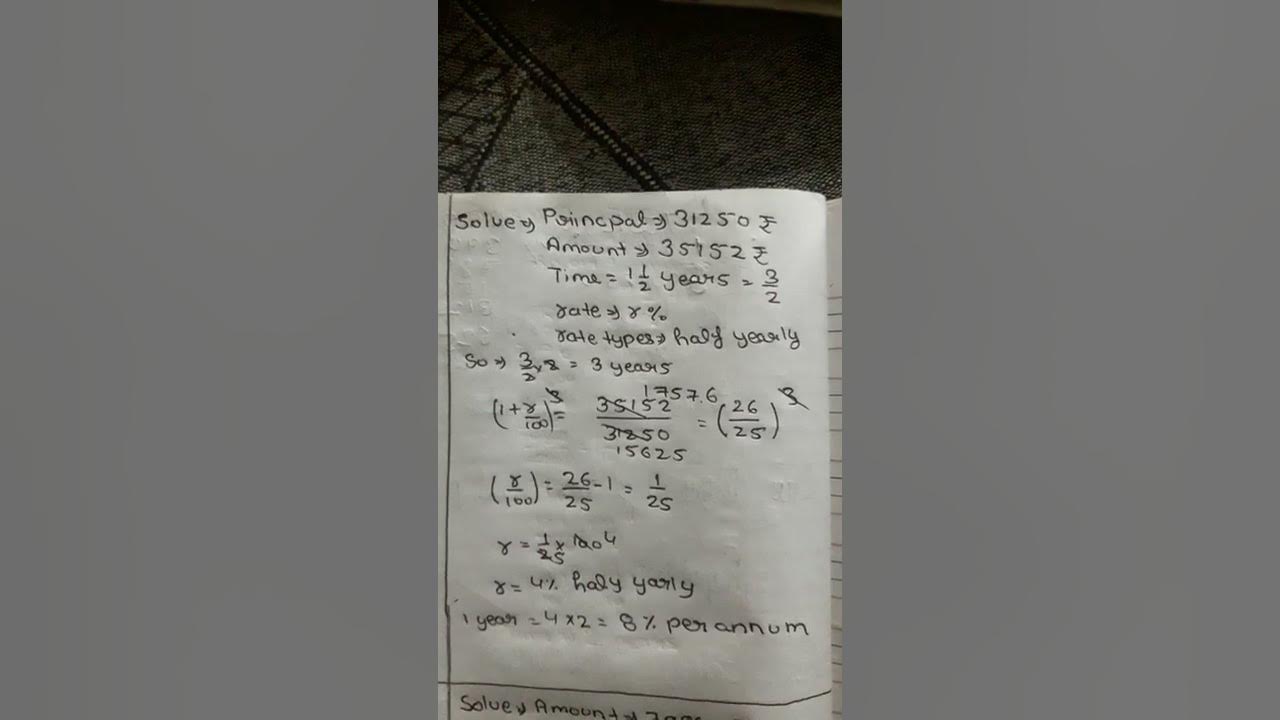 Solve⇒ Priincpal⇒ 31250 ₹
Amount⇒ 35152 ₹
Time = 1 1/2 years = 3/2
rate⇒ r%
rate types⇒ half yearly
So⇒ 3/2 × 2 = 3 years
(1 + r/100)^3 = 35152/31250 17576/15625 = (26/25)^3
(r/100) = 26/25 - 1 = 1/25
r = 1/25 × 100 4
r = 4% haly yarly
1 year = 4 × 2 = 8% per annum
Solve⇒ Amount⇒